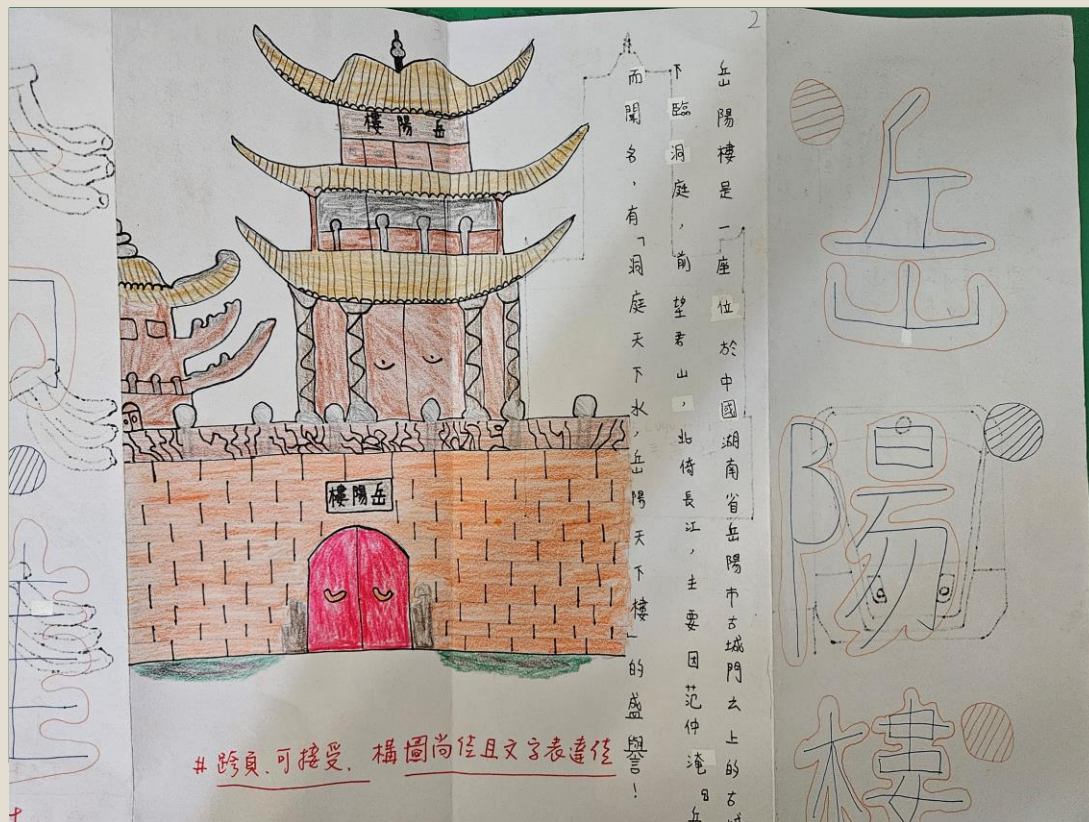 2
岳
陽
樓
岳陽樓是一座位於中國湖南省岳陽市古城門之上的古城
下臨洞庭,前望君山,北倚長江,主要因范仲淹岳
而聞名,有「洞庭天下水,岳陽天下樓」的盛譽!
岳陽樓
岳陽樓
#跨頁.可接受. 構圖尚佳且文字表達佳